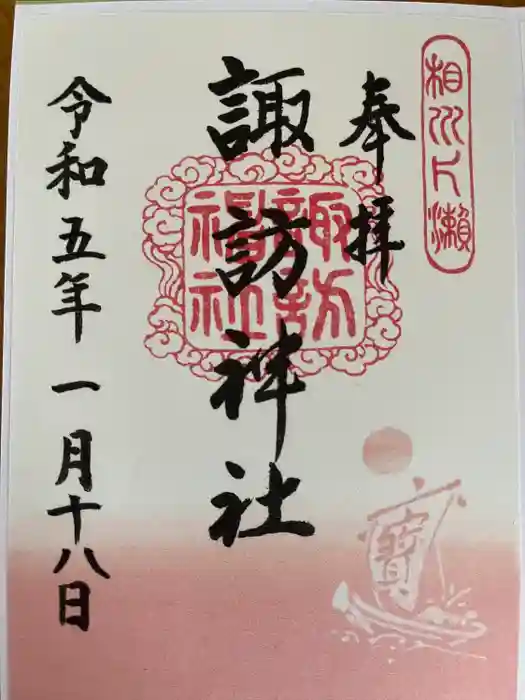 相州片瀬
奉拝
諏訪神社
諏訪
神社
令和五年一月十八日
寶